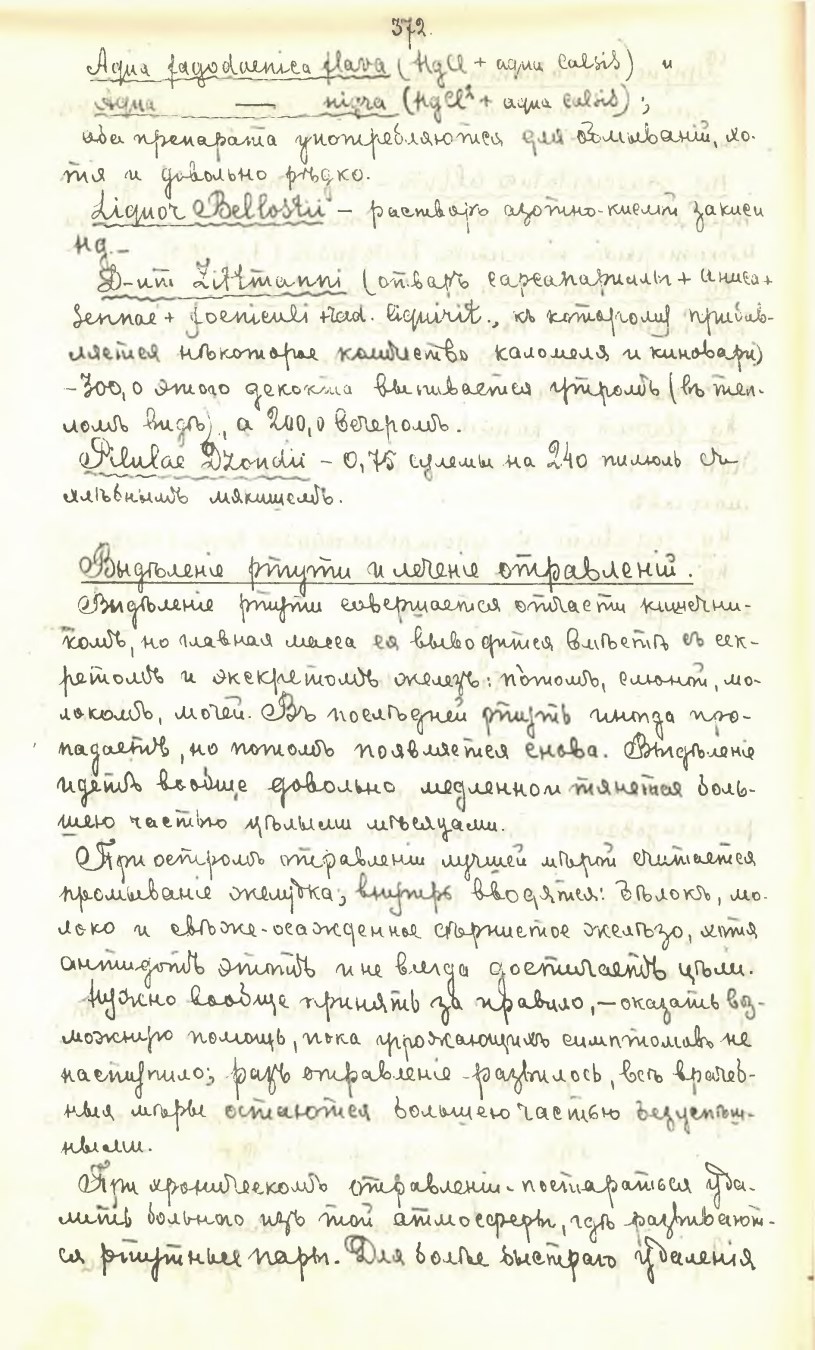 372.
Aqua fagodaenica flava (HgCl + aqua Calsis) и
Aqua — nigra (HgCl² + aqua Calsis);
оба препарата употребляются для обмываній, хо-
тя и довольно рѣдко.
Liquor Bellostii – растворъ азотно-кислой закиси
Hg.–
D-um Zittmanni (отваръ сарсапариллы + аниса +
Sennae + foeniculi + rad. liquirit., къ которому прибав-
ляется нѣкоторое количество каломеля и киновари)
– 300,0 этого декокта выпивается утромъ (въ теп-
ломъ видѣ), а 200,0 вечеромъ.
Pilulae Dzondii – 0,75 сулемы на 240 пилюль съ
хлѣбнымъ мякишемъ.
Выдѣленіе ртути и леченіе отравленій.
Выдѣленіе ртути совершается отчасти кишечни-
комъ, но главная масса ея выводится вмѣстѣ съ сек-
ретомъ и экскретомъ железъ: пòтомъ, слюной, мо-
локомъ, мочей. Въ послѣдней ртуть иногда про-
падаетъ, но потомъ появляется снова. Выдѣленіе
идетъ вообще довольно медленно и тянется боль-
шею частью цѣлыми мѣсяцами.
При остромъ отравленіи лучшей мѣрой считается
промываніе желудка; внутрь вводятся: бѣлокъ, мо-
локо и свѣже-осажденное сѣрнистое желѣзо, хотя
антидотъ этотъ и не всегда достигаетъ цѣли.
Нужно вообще принять за правило, – оказать воз-
можную помощь, пока угрожающихъ симптомовъ не
наступило; разъ отравленіе развилось, всѣ врачеб-
ныя мѣры остаются большею частью безуспѣш-
ными.
При хроническомъ отравленіи – постараться уда-
лить больного изъ той атмосферы, гдѣ развивают-
ся ртутные пары. Для болѣе быстраго удаленія